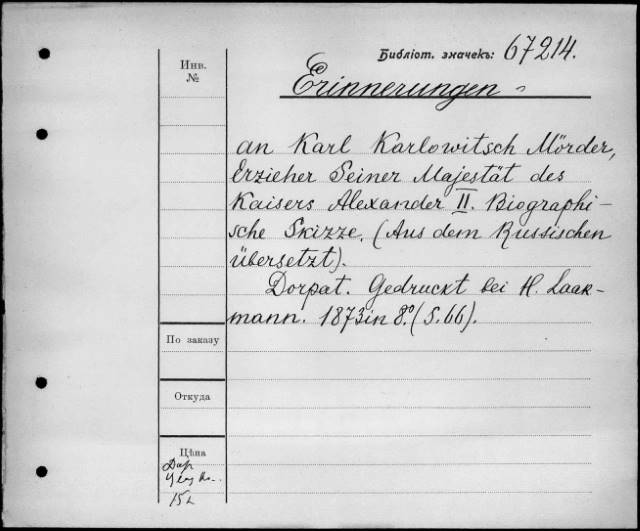 Библіот. значекъ: 67214.
Инв.
№
Erinnerungen
an Karl Karlowitsch Mörder,
Erzieher Seiner Majestät des
Kaisers Alexander II. Biographi-
sche Skizze. (Aus dem Russischen
übersetzt).
Dorpat. Gedruckt bei H. Laak-
mann. 1873 in 8.° (S. 66).
По заказу
Откуда
Цѣна
Дар